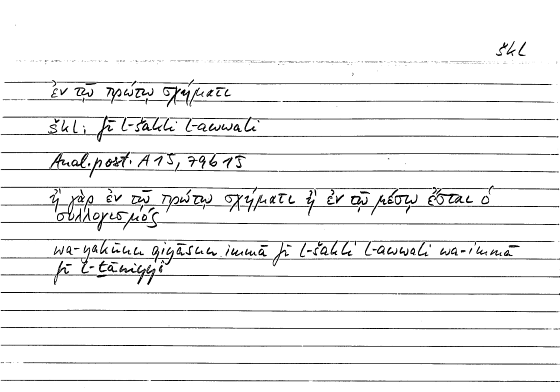 škl
ἐν τῷ πρώτῳ σχήματι
škl: fī l-šakli l-awwali
Anal. post. A 15, 79b15
ἢ γὰρ ἐν τῷ πρώτῳ σχήματι ἢ ἐν τῷ μέσῳ ἔσται ὁ
συλλογισμός
wa-yakūnu qiyāsun immā fī l-šakli l-awwali wa-immā
fī l-ṯāniyyi